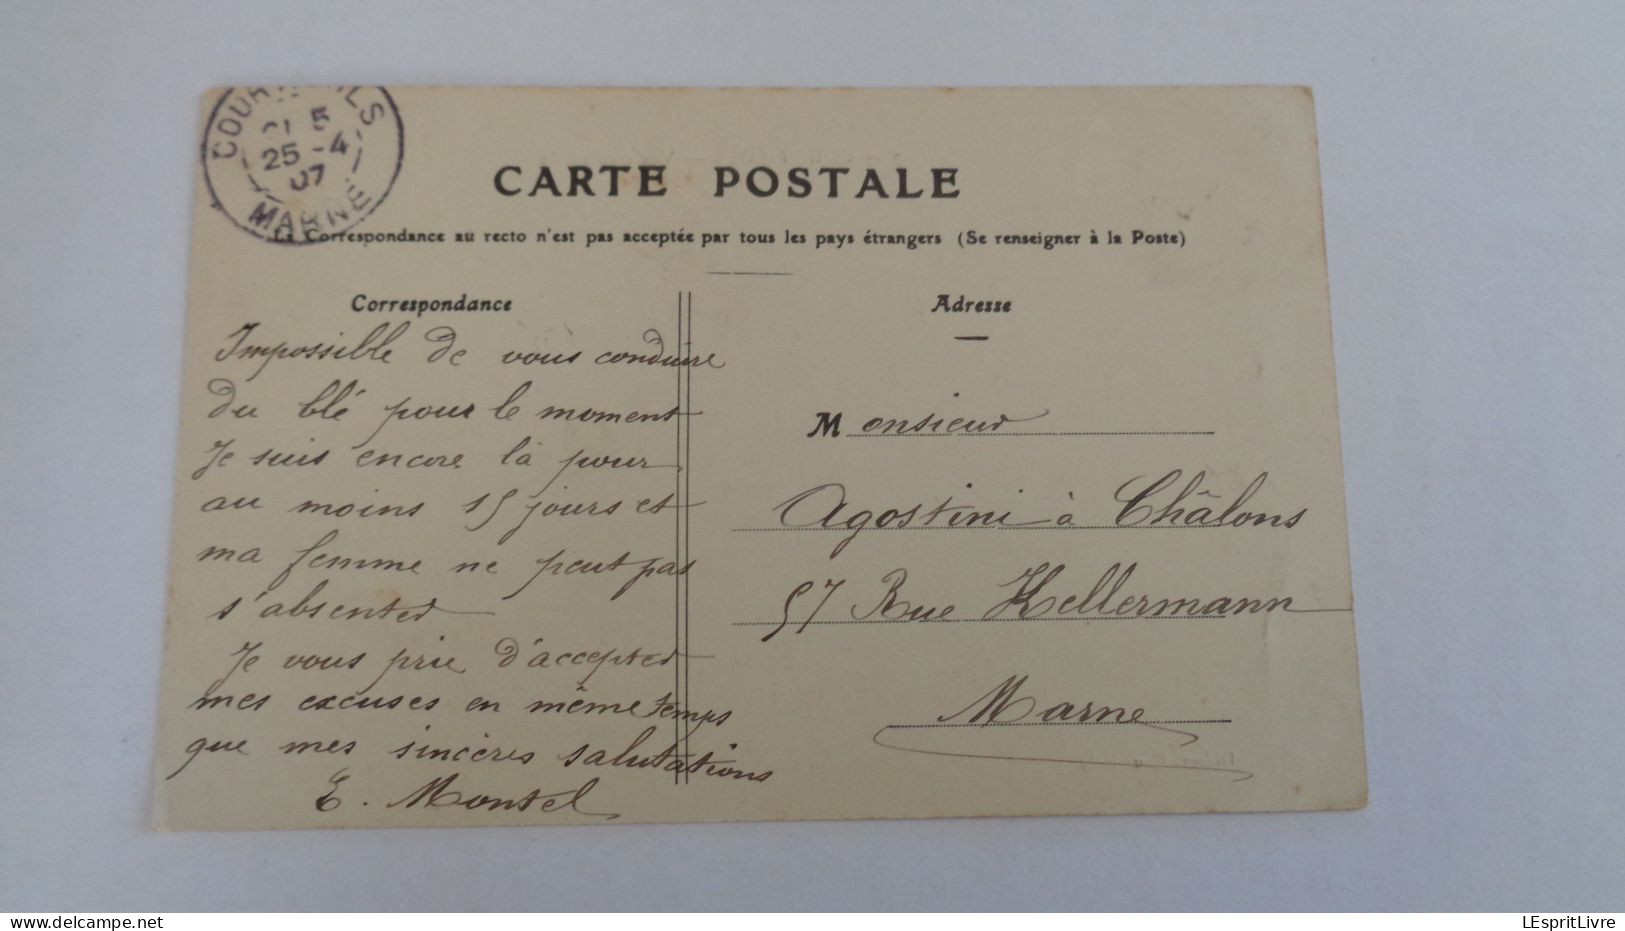 25 - 4
07
MARNE
CARTE POSTALE
La Correspondance au recto n'est pas acceptée par tous les pays étrangers (Se renseigner à la Poste)
Correspondance
Impossible de vous conduire
du blé pour le moment
Je suis encore là pour
au moins 15 jours et
ma femme ne peut pas
s'absenter
Je vous prie d'accepter
mes excuses en même temps
que mes sincères salutations
E. Montel
Adresse
Monsieur
Agostini à Châlons
57 Rue Kellermann
Marne
www.delcampe.net
LEspritLivre